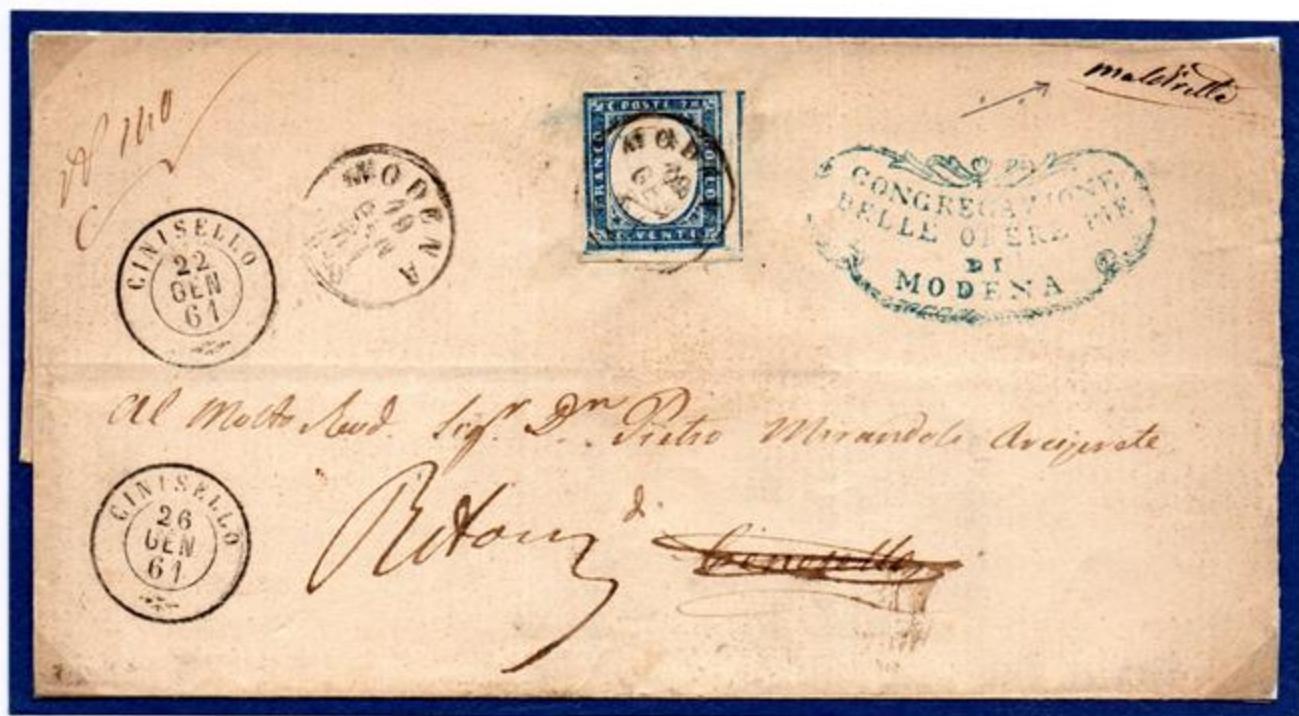 maldiretta
No 140
MODENA
19
GEN
61
MOD
19
GEN
C. POSTE 20
FRANCO
BOLLO
C. VENTI
CONGREGAZIONE
DELLE OPERE PIE
DI
MODENA
CINISELLO
22
GEN
61
Al Molto Revd. Sigr. Dn. Pietro Mirandola Arciprete
di
CINISELLO
26
GEN
61